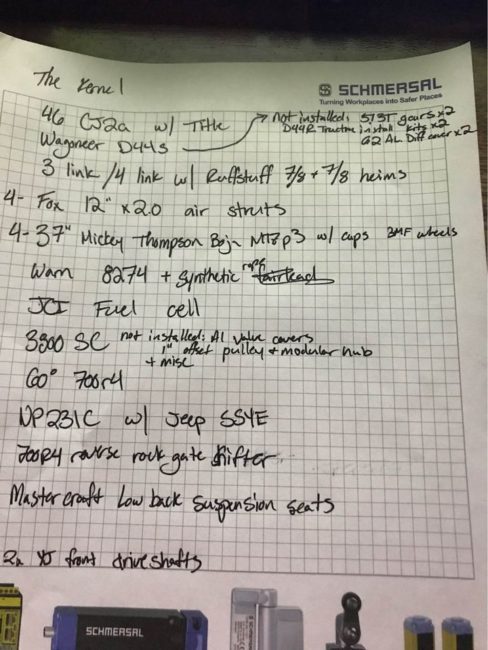 The Kernel
SCHMERSAL
Turning Workplaces into Safer Places
46 CJ2a w/ Title
not installed: 5.13? gears x2
Wagoneer D44s
D44R Tractive install kits x2
G2 AL Diff cover x2
3 link/4 link w/ Ruffstuff 7/8 + 7/8 heims
4- Fox 12" x 2.0 air struts
4- 37" Mickey Thompson Baja MTZ p3 w/ caps 3MF wheels
Warn 8274 + synthetic rope
JCI Fuel cell
3800 SC not installed: AL valve covers
1" offset pulley + modular hub
+ misc
60° 700r4
NP231C w/ Jeep SSYE
700R4 reverse rock gate shifter
Mastercraft Low back suspension seats
2x XJ front driveshafts
SCHMERSAL
SCHMERSAL